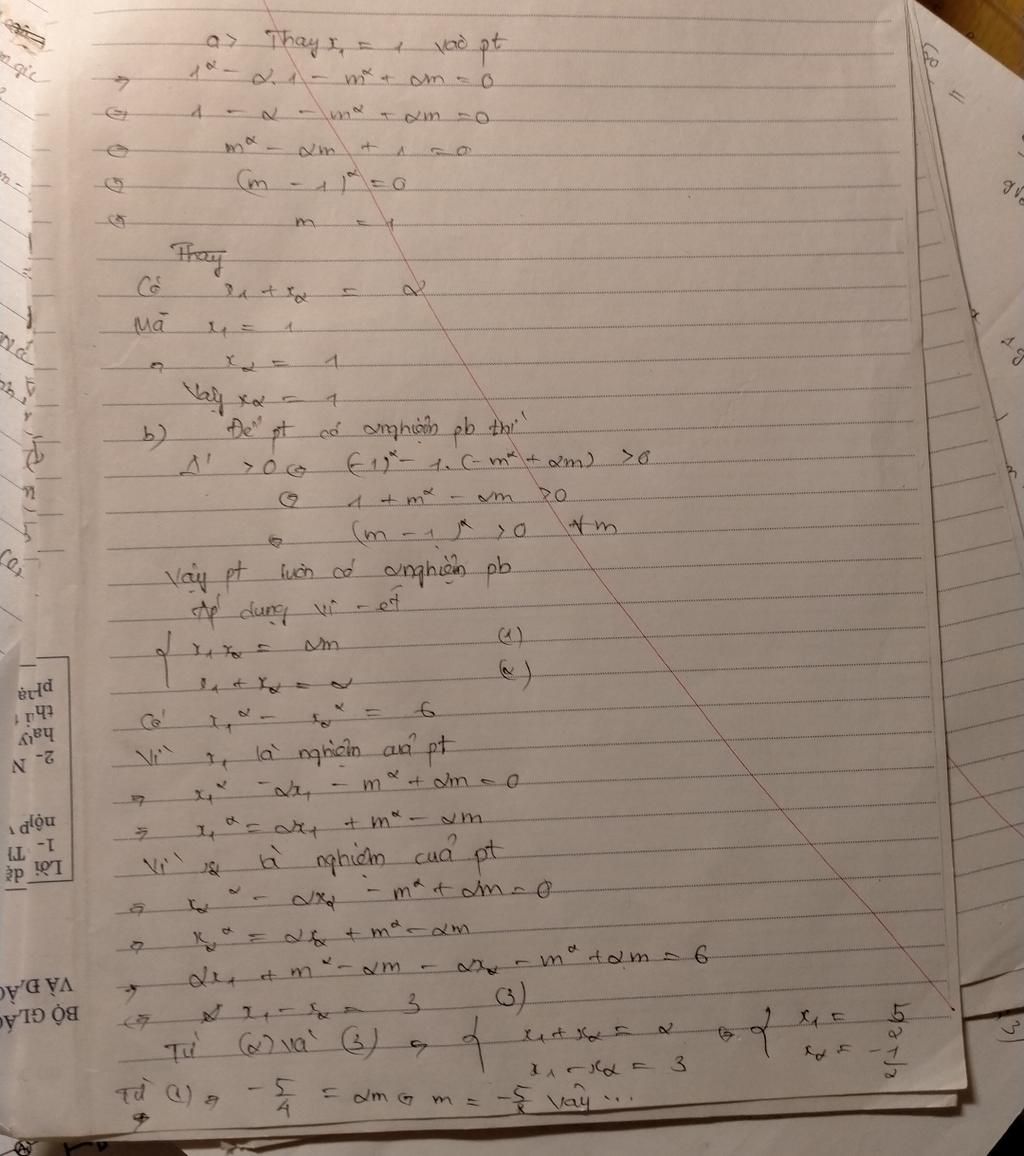 a> Thay x₁ = 1 vào pt
⇒ 1² - 2.1 - m² + 2m = 0
⇔ 1 - 2 - m² + 2m = 0
⇔ m² - 2m + 1 = 0
⇔ (m - 1)² = 0
⇔ m = 1
Thay
Có x₁ + x₂ = 2
Mà x₁ = 1
⇒ x₂ = 1
Vậy x₂ = 1
b) Để pt có 2 nghiệm pb thì
Δ' > 0 ⇔ (-1)² - 1.(-m² + 2m) > 0
⇔ 1 + m² - 2m > 0
⇔ (m - 1)² > 0 ∀m
Vậy pt luôn có 2 nghiệm pb
Áp dụng vi-ét
{ x₁x₂ = 2m (1)
x₁ + x₂ = 2 (2)
Có x₁² - x₂² = 6
Vì x₁ là nghiệm của pt
⇒ x₁² - 2x₁ - m² + 2m = 0
⇒ x₁² = 2x₁ + m² - 2m
Vì x₂ là nghiệm của pt
⇒ x₂² - 2x₂ - m² + 2m = 0
⇒ x₂² = 2x₂ + m² - 2m
⇒ 2x₁ + m² - 2m - 2x₂ - m² + 2m = 6
⇔ x₁ - x₂ = 3 (3)
Từ (2) và (3) ⇒ { x₁ + x₂ = 2 ⇔ { x₁ = 5/2
x₁ - x₂ = 3 x₂ = -1/2
Từ (1) ⇒ -5/4 = 2m ⇔ m = -5/8 Vậy ...
BỘ GIÁO
VÀ ĐÀO
Lời
1- T
nộp
2- N
hay